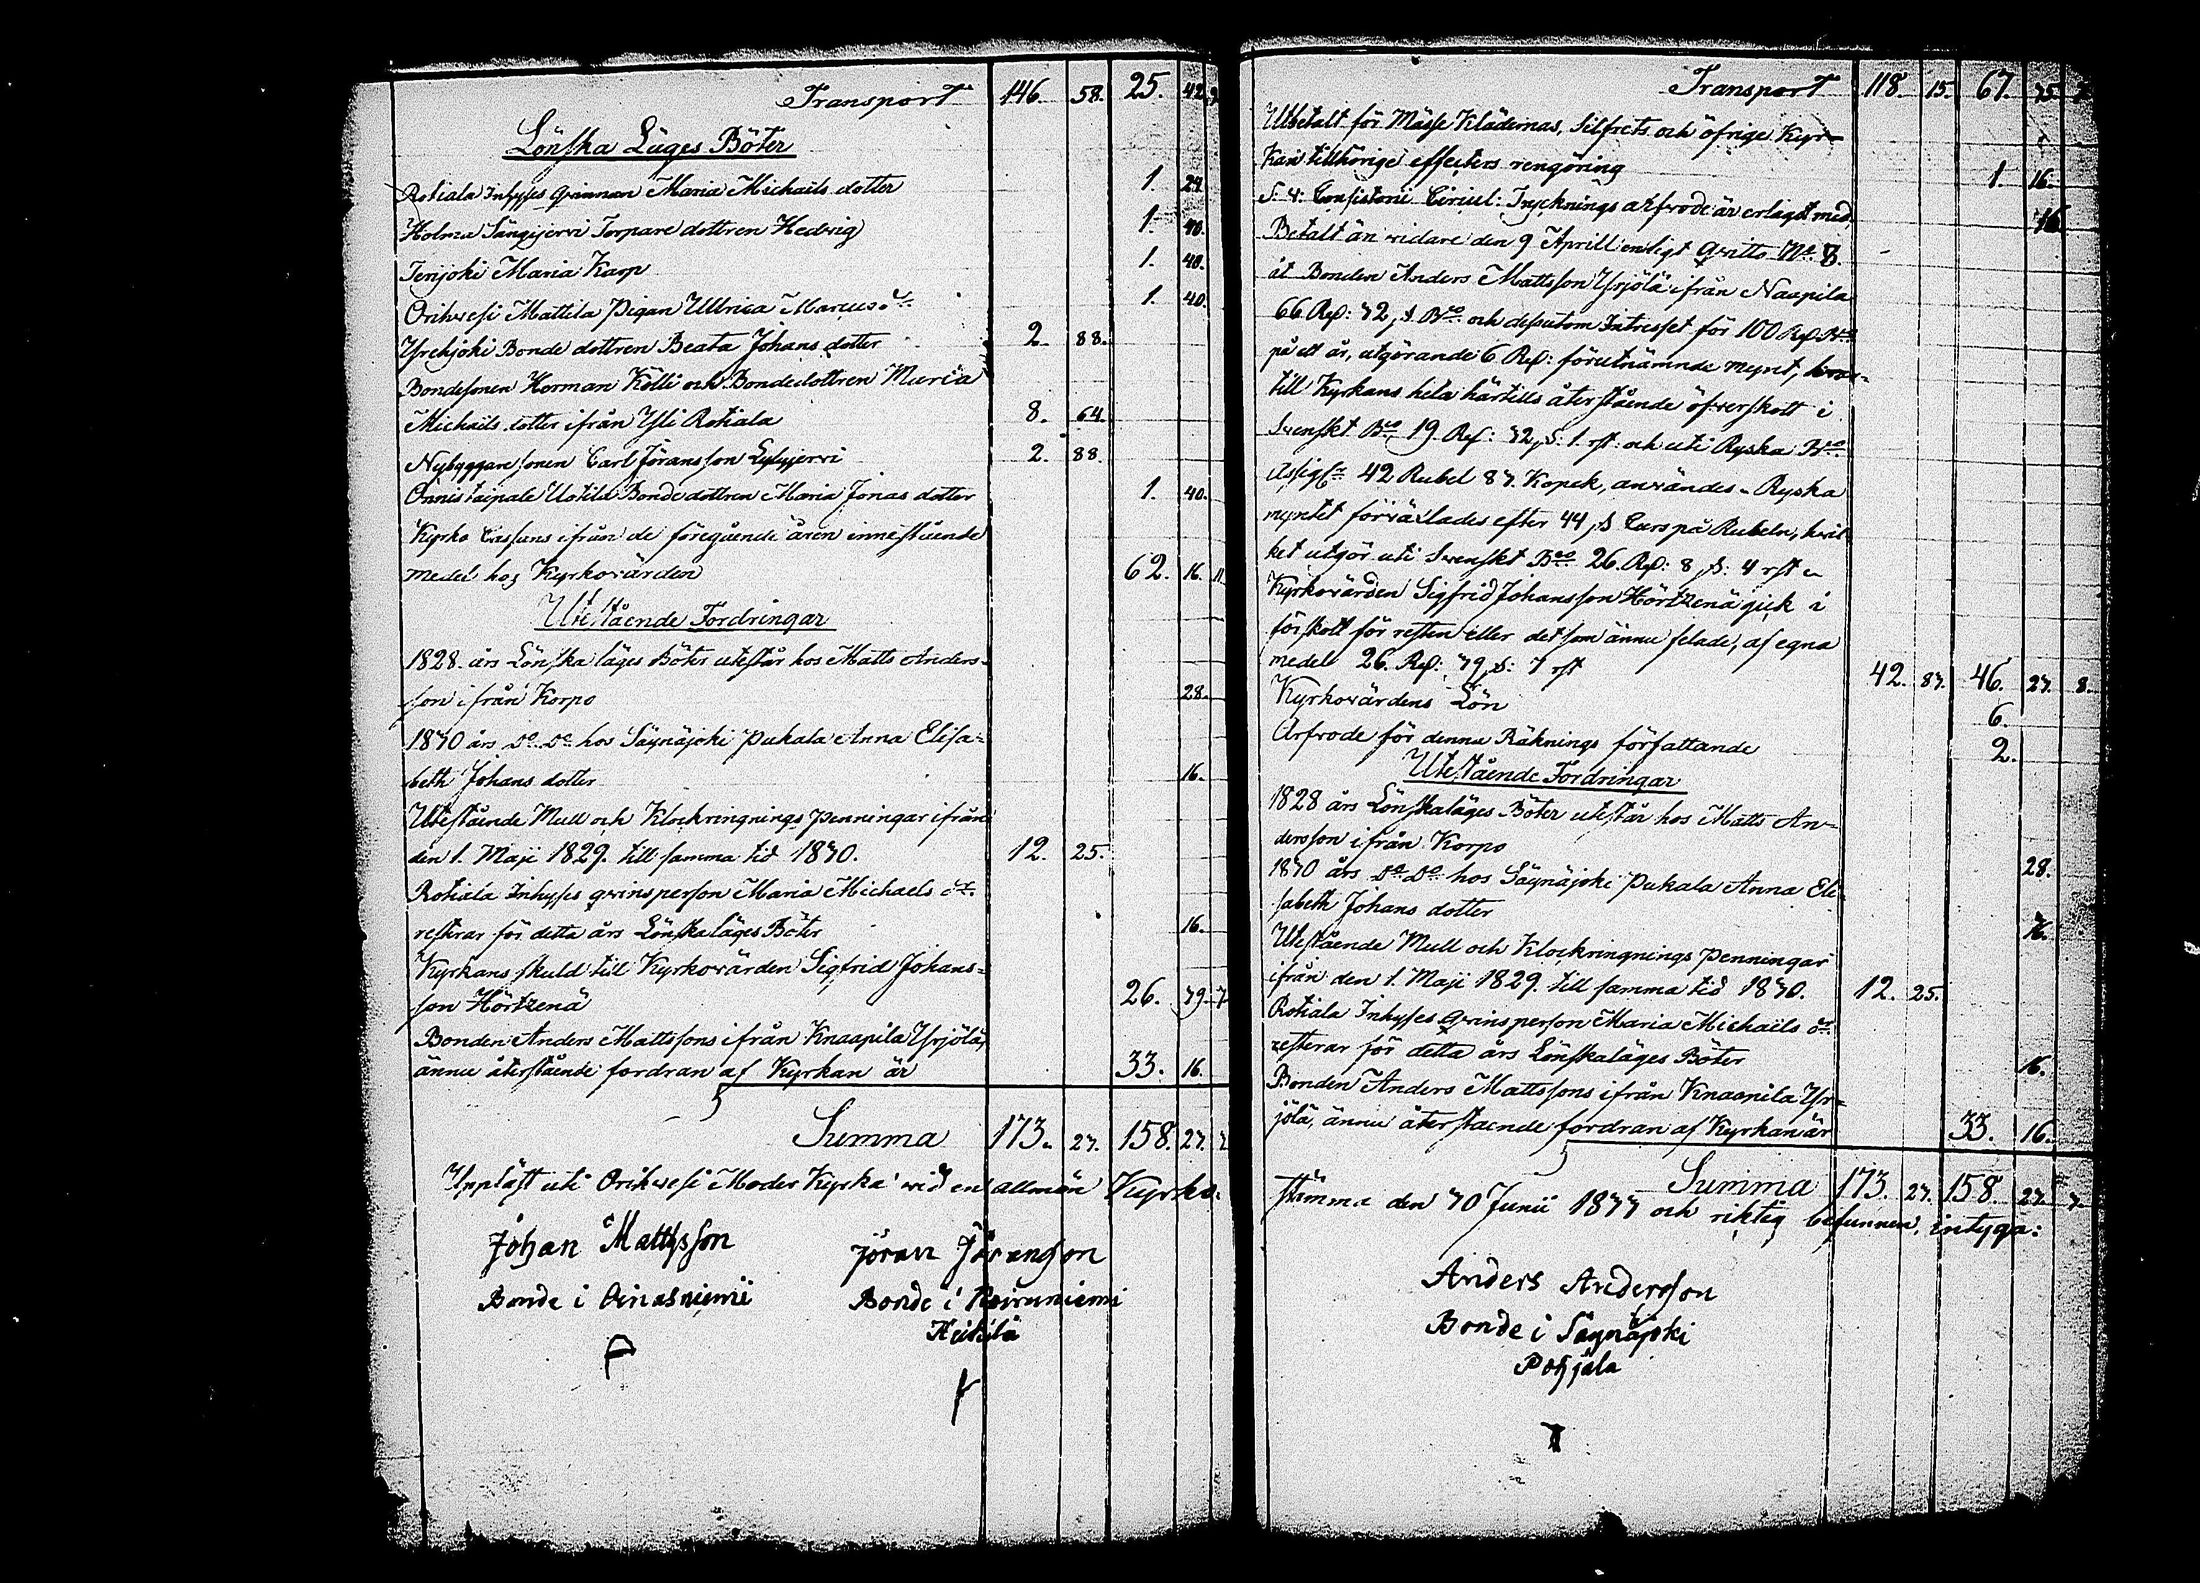 Transport 146. 58. 25. 42.
Lönska Läges Böter
Rotiala Inhyses qvinnan Maria Michaëls dotter 1. 24.
Holma Sängijerwi Torpare dottren Hedvig 1. 40.
Terijoki Maria Karp 1. 40.
Orihvesi Mattila Pigan Ullrica Marcus dr 1. 40.
Yrekjoki Bonde dottren Beata Johans dotter 2. 88.
Bondesonen Herman Kölli och Bondedottren Maria
Michaëls dotter ifrån Yli Rotiala 8. 64.
Nybyggare sonen Carl Jöransson Lylyjerwi 2. 88.
Önnistaipale Uotila Bonde dottren Maria Jonas dotter 1. 40.
Kyrko Cassans ifrån de föregående åren innestående
medel hos Kyrkovärden 62. 16. 11.
Utestående Fordringar
1828 års Lönska läges Böter utestår hos Matts Anders-
son ifrån Korpo 28.
1830 års Do Do hos Säynäjoki Pukala Anna Elisa-
beth Johans dotter 16.
Utestående Mull och Klockringnings Penningar ifrån
den 1. Maji 1829. till samma tid 1830. 12. 25.
Rotiala Inhyses qvinsperson Maria Michaels dr.
resterar för detta års Lönskaläges Böter 16.
Kyrkans skuld till Kyrkovärden Sigfrid Johans-
son Hörtzenä 26. 39. 7.
Bonden Anders Mattssons ifrån Knaapila Yrjölä,
ännu återstående fordran af Kyrkan är 33. 16.
Summa 173. 27. 158. 27. 7
Uppläst uti Orihvesi Moder Kyrka vid en allmän Kyrko-
Johan Mattsson
Bonde i Oinasniemi
Jöran Jöransson
Bonde i Koivuniemi
Heikilä
Transport 118. 15. 67. 35.
Utbetalt för Mässe Klädernas, Silfrets och öfrige Kyr-
kan tillhörige effecters rengöring 1. 16.
S: v: Consistorii Circul: Tryknings arfvode är erlagdt med 16.
Betalt än vidare den 9 Aprill enligt Qvitto No 8.
åt Bonden Anders Mattsson Yrjölä ifrån Naapila
66 Rd: 32 s Bco och dessutom Intresset för 100 Rd Bco
på ett år, utgörande 6 Rd: förutnämnde mynt, hvar-
till Kyrkans hela härtills återstående öfverskott i
Svenskt Bco 19 Rd: 32 s: 1 rst: och uti Ryska Bco
Assigr 42 Rubel 87. Kopek, användes. Ryska
myntet förvexlades efter 44 s Curs på Rubeln, hvil-
ket utgör uti Svenskt Bco 26. Rd: 8 s: 4 rst
Kyrkovärden Sigfrid Johansson Hörtzenä gick i
förskott för resten eller det som ännu felade, af egna
medel 26. Rd: 39 s: 7 rst 42. 87. 46. 27. 8.
Kyrkovärdens Lön 6.
Arfvode för denna Räknings författande 2.
Utestående Fordringar
1828 års Lönskaläges Böter utestår hos Matts An-
dersson ifrån Korpo 28.
1830 års Do Do hos Säynäjoki Pukala Anna Eli-
sabeth Johans dotter 16.
Utestående Mull och Klockringnings Penningar
ifrån den 1. Maji 1829. till samma tid 1830. 12. 25.
Rotiala Inhyses Qvinsperson Maria Michaëls dr
resterar för detta års Lönskaläges Böter 16.
Bonden Anders Mattssons ifrån Knaapila Yr-
jölä, ännu återstående fordran af Kyrkan är 33. 16.
Summa 173. 27. 158. 27. 7.
stämma den 30 Junii 1833 och riktig befunnen, intyga:
Anders Andersson
Bonde i Säynäjoki
Pohjala